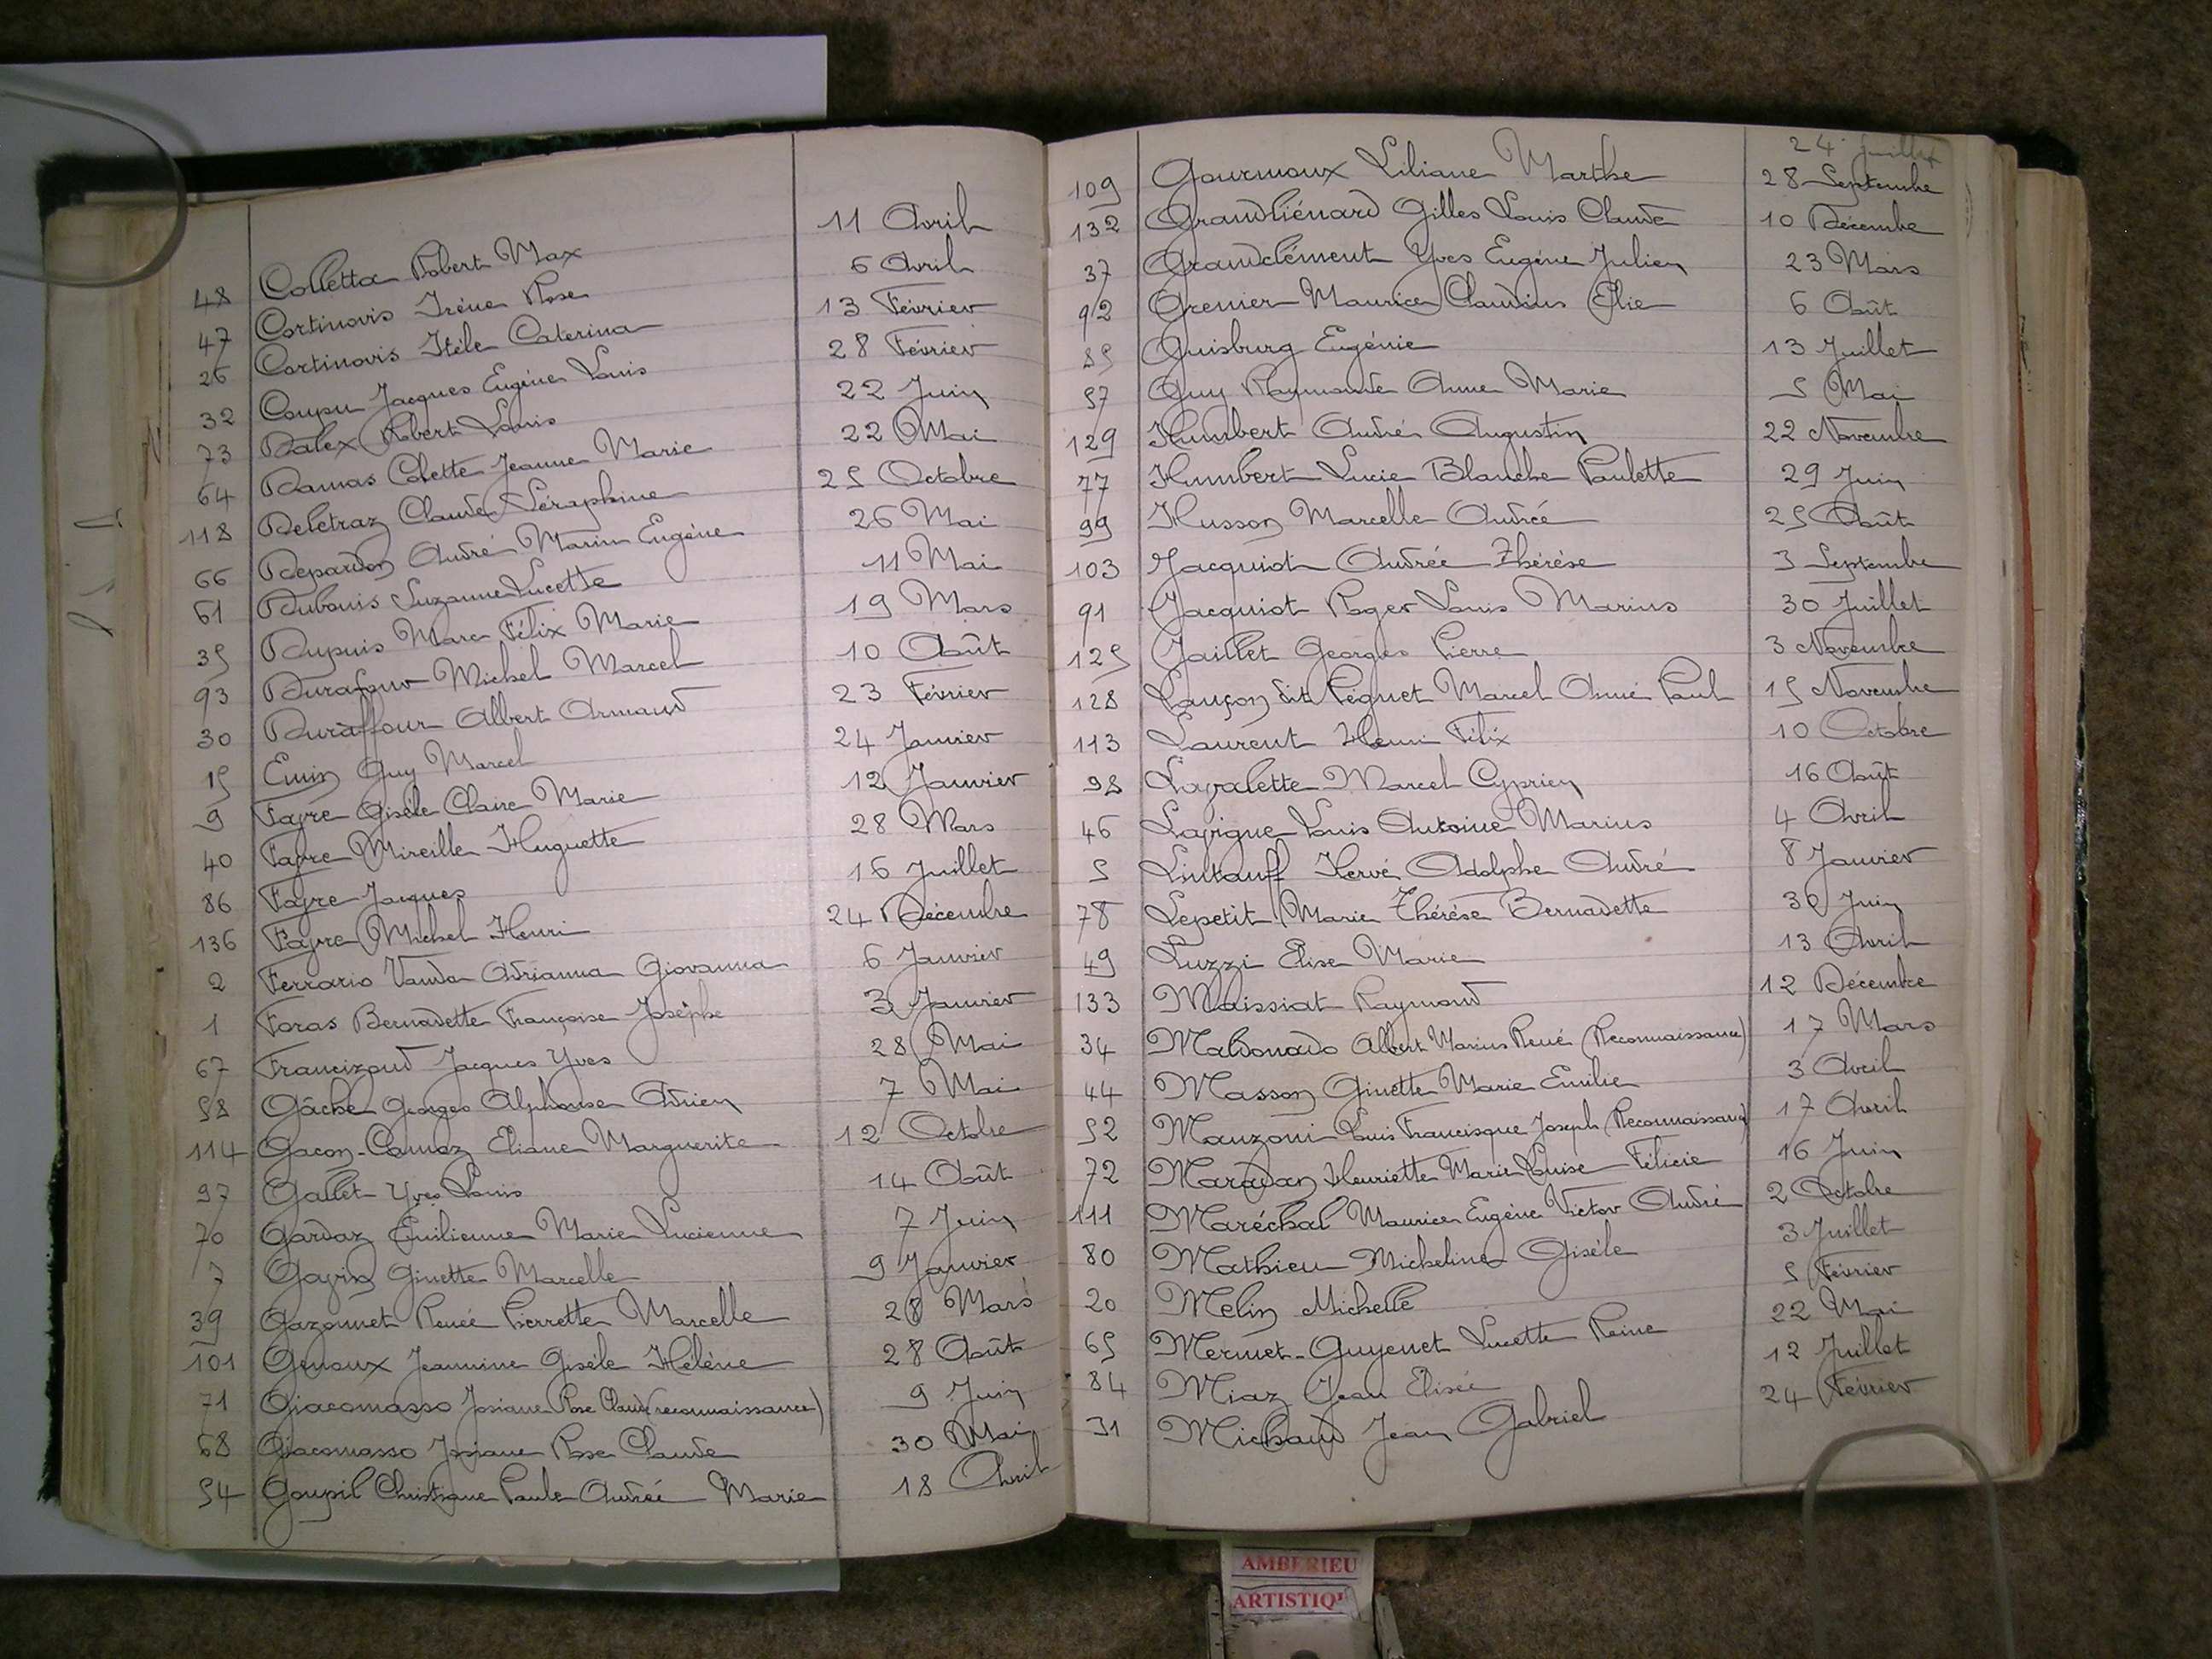 48 Colletta Robert Max 11 Avril
47 Cortinovis Irène Rose 6 Avril
26 Cortinovis Itéle Caterina 13 Février
32 Coupu Jacques Eugène Louis 28 Février
73 Dalex Robert Louis 22 Juin
64 Damas Colette Jeanne Marie 22 Mai
118 Deletraz Claude Séraphine 25 Octobre
66 Depardon André Marin Eugène 26 Mai
61 Dubouis Suzanne Lucette 11 Mai
35 Dupuis Marc Félix Marie 19 Mars
93 Durafour Michel Marcel 10 Août
30 Duraffour Albert Armand 23 Février
15 Emin Guy Marcel 24 Janvier
9 Favre Gisèle Claire Marie 12 Janvier
40 Favre Mireille Huguette 28 Mars
86 Favre Jacques 16 Juillet
136 Favre Michel Henri 24 Décembre
2 Ferrario Vanda Adrianna Giovanna 6 Janvier
1 Foras Bernadette Françoise Josèphe 3 Janvier
67 Francizoud Jacques Yves 28 Mai
58 Gâche Georges Alphonse Adrien 7 Mai
114 Gacon-Camoz Eliane Marguerite 12 Octobre
97 Gallet Yves Louis 14 Août
70 Gardaz Emilienne Marie Lucienne 7 Juin
7 Gavin Ginette Marcelle 9 Janvier
39 Gazonnet Renée Pierrette Marcelle 28 Mars
101 Genoux Jeannine Gisèle Hélène 28 Août
71 Giacomasso Josiane Rose Claude (reconnaissance) 9 Juin
68 Giacomasso Josiane Rose Claude 30 Mai
54 Goupil Christiane Paule Andrée Marie 18 Avril
24 Juillet
109 Gourmoux Liliane Marthe 28 Septembre
132 Grandliénard Gilles Louis Claude 10 Décembre
37 Grandclément Yves Eugène Julien 23 Mars
92 Grenier Maurice Claudius Elie 6 Août
85 Guisburg Eugénie 13 Juillet
57 Guy Raymonde Anne Marie 5 Mai
129 Humbert André Augustin 22 Novembre
77 Humbert Lucie Blanche Paulette 29 Juin
99 Husson Marcelle Andrée 25 Août
103 Jacquiot Andrée Thérèse 3 Septembre
91 Jacquiot Roger Louis Marius 30 Juillet
125 Jaillet Georges Pierre 3 Novembre
128 Lançon dit Péguet Marcel Aimé Paul 15 Novembre
113 Laurent Henri Félix 10 Octobre
98 Lavalette Marcel Cyprien 16 Août
46 Lavigne Louis Antoine Marius 4 Avril
5 Lintauff Hervé Adolphe André 8 Janvier
78 Lepetit Marie Thérèse Bernadette 30 Juin
49 Luzzi Elise Marie 13 Avril
133 Maissiat Raymond 12 Décembre
34 Maldonado Albert Marius René (Reconnaissance) 17 Mars
44 Masson Ginette Marie Emilie 3 Avril
52 Manzoni Louis Francisque Joseph (Reconnaissance) 17 Avril
72 Maradan Henriette Marie Louise Félicie 16 Juin
111 Maréchal Maurice Eugène Victor André 2 Octobre
80 Mathieu Micheline Gisèle 3 Juillet
20 Melin Michelle 5 Février
65 Mermet-Guyenet Lucette Reine 22 Mai
84 Miaz Jean Elisée 12 Juillet
31 Michaud Jean Gabriel 24 Février
AMBERIEU
ARTISTIQ